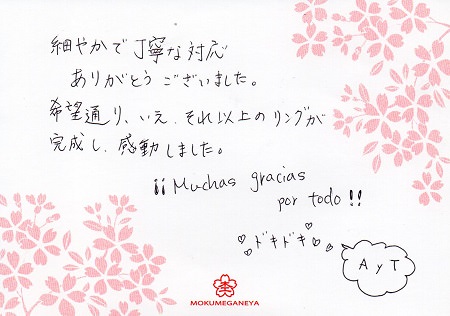 細やかで丁寧な対応
ありがとうございました。
希望通り、いえ、それ以上のリングが
完成し、感動しました。
¡¡Muchas gracias
por todo!!
♡♡ドキドキ♡♡
A y T
MOKUMEGANEYA